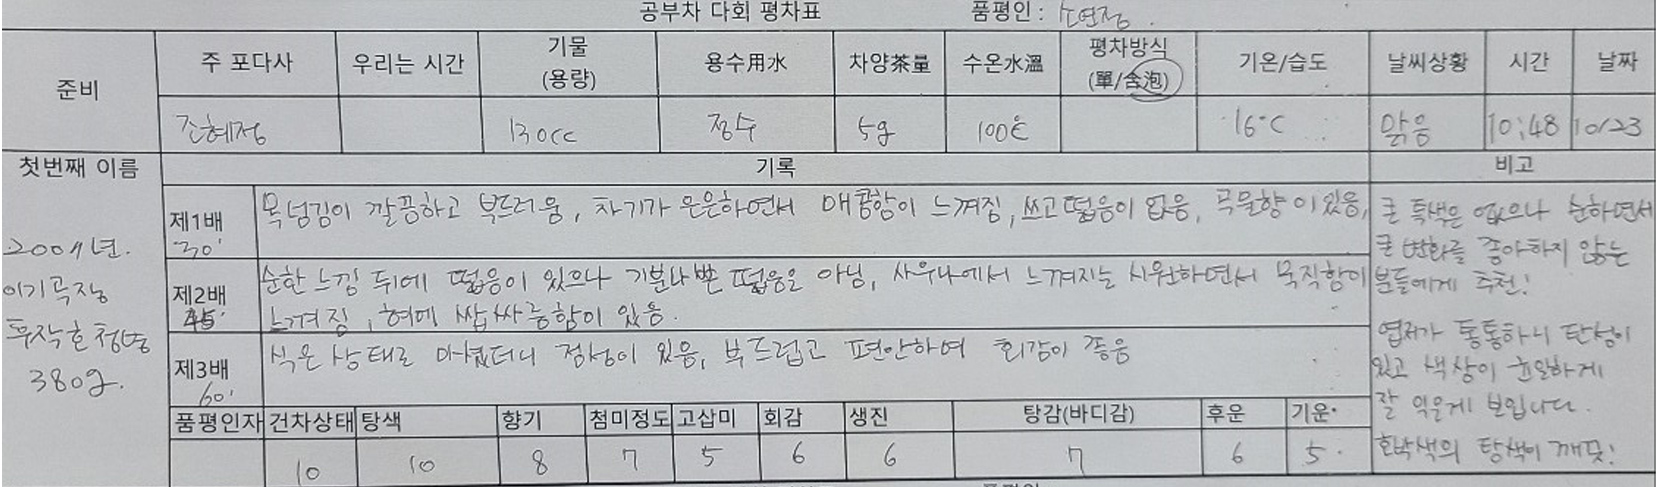 공부차 다회 평차표 품평인 :
준비 주 포다사 우리는 시간 기물 (용량) 용수用水 차양茶量 수온水溫 평차방식 (單/含泡) 기온/습도 날씨상황 시간 날짜
조혜정 130cc 정수 5g 100℃ 16℃ 맑음 10:48 10/23
첫번째 이름 기록 비고
제1배 30' 목넘김이 깔끔하고 부드러움, 차기가 은은하면서 매콤함이 느껴짐, 쓰고 떫음이 없음, 곡물향이 있음,
제2배 45' 순한 느낌 뒤에 떫음이 있으나 기분나쁜 떫음은 아님, 사우나에서 느껴지는 시원하면서 묵직함이
느껴짐, 혀에 쌉싸름함이 있음.
제3배 60' 식은 상태로 마셨더니 점성이 있음, 부드럽고 편안하며 회감이 좋음
2007년.
이기곡장
380g.
큰 특색은 없으나 순하면서
큰 변화를 좋아하지 않는
분들에게 추천!
엽저가 통통하니 탄성이
있고 색상이 균일하게
잘 익은게 보입니다.
호박색의 탕색이 깨끗!
품평인자 건차상태 탕색 향기 첨미정도 고삽미 회감 생진 탕감(바디감) 후운 기운
10 10 8 7 5 6 6 7 6 5